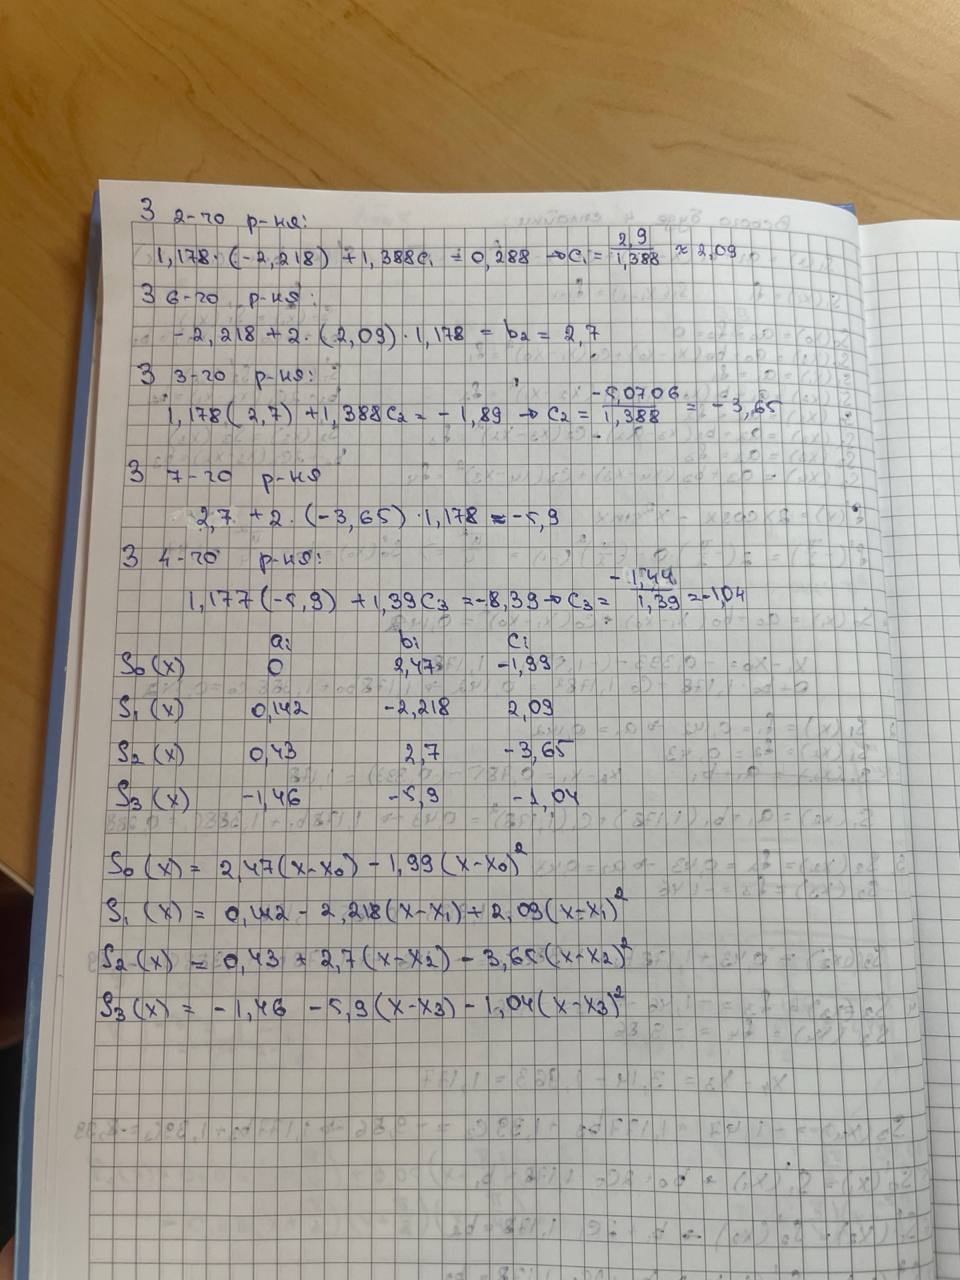 З 2-го р-ня:
1,178·(-2,218) + 1,388c₁ = 0,288 → c₁ = 2,9/1,388 ≈ 2,09
З 6-го р-ня:
-2,218 + 2·(2,09)·1,178 = b₂ = 2,7
З 3-го р-ня:
1,178(2,7) + 1,388c₂ = -1,89 → c₂ = -5,0706/1,388 = -3,65
З 7-го р-ня
2,7 + 2·(-3,65)·1,178 = -5,9
З 4-го р-ня:
1,177(-5,9) + 1,39c₃ = -8,39 → c₃ = -1,44/1,39 = -1,04
aᵢ bᵢ cᵢ
S₀(x) 0 2,47 -1,99
S₁(x) 0,142 -2,218 2,09
S₂(x) 0,43 2,7 -3,65
S₃(x) -1,46 -5,9 -1,04
S₀(x) = 2,47(x-x₀) - 1,99(x-x₀)²
S₁(x) = 0,142 - 2,218(x-x₁) + 2,09(x-x₁)²
S₂(x) = 0,43 + 2,7(x-x₂) - 3,65(x-x₂)²
S₃(x) = -1,46 - 5,9(x-x₃) - 1,04(x-x₃)²